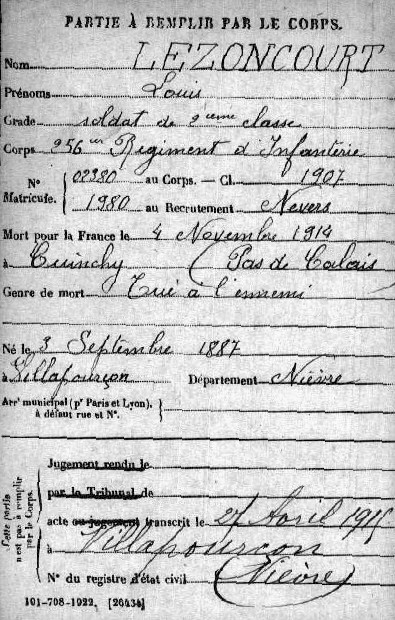 PARTIE À REMPLIR PAR LE CORPS.
Nom LEZONCOURT
Prénoms Louis
Grade soldat de 2ième classe
Corps 256me Régiment d'Infanterie
N° Matricule. 02380 au Corps. — Cl. 1907
1980 au Recrutement Nevers
Mort pour la France le 4 Novembre 1914
à Cuinchy (Pas de Calais
Genre de mort Tué à l'ennemi
Né le 3 Septembre 1887
à Villapourçon Département Nièvre
Arrt municipal (pr Paris et Lyon),
à défaut rue et N°.
Cette partie n'est pas à remplir par le Corps.
Jugement rendu le
par le Tribunal de
acte ou jugement transcrit le 27 Avril 1915
à Villapourçon
N° du registre d'état civil (Nièvre)
101-708-1922. [26434]